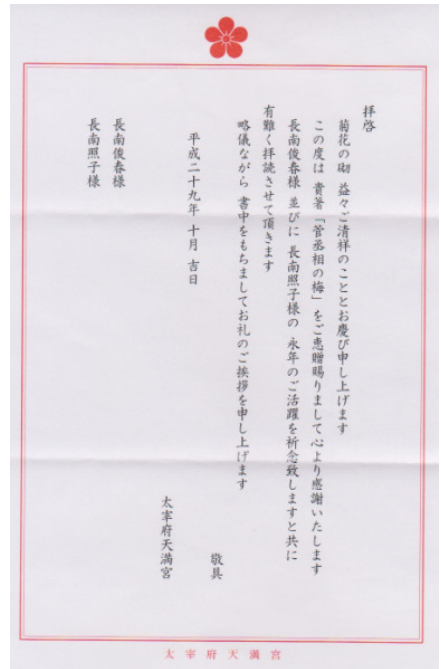 拝啓
菊花の砌 益々ご清祥のこととお慶び申し上げます
この度は 貴著「菅丞相の梅」をご恵贈賜りまして心より感謝いたします
長南俊春様 並びに 長南照子様の 永年のご活躍を祈念致しますと共に
有難く拝読させて頂きます
略儀ながら 書中をもちましてお礼のご挨拶を申し上げます
敬具
平成二十九年 十月 吉日
太宰府天満宮
長南俊春様
長南照子様
太宰府天満宮